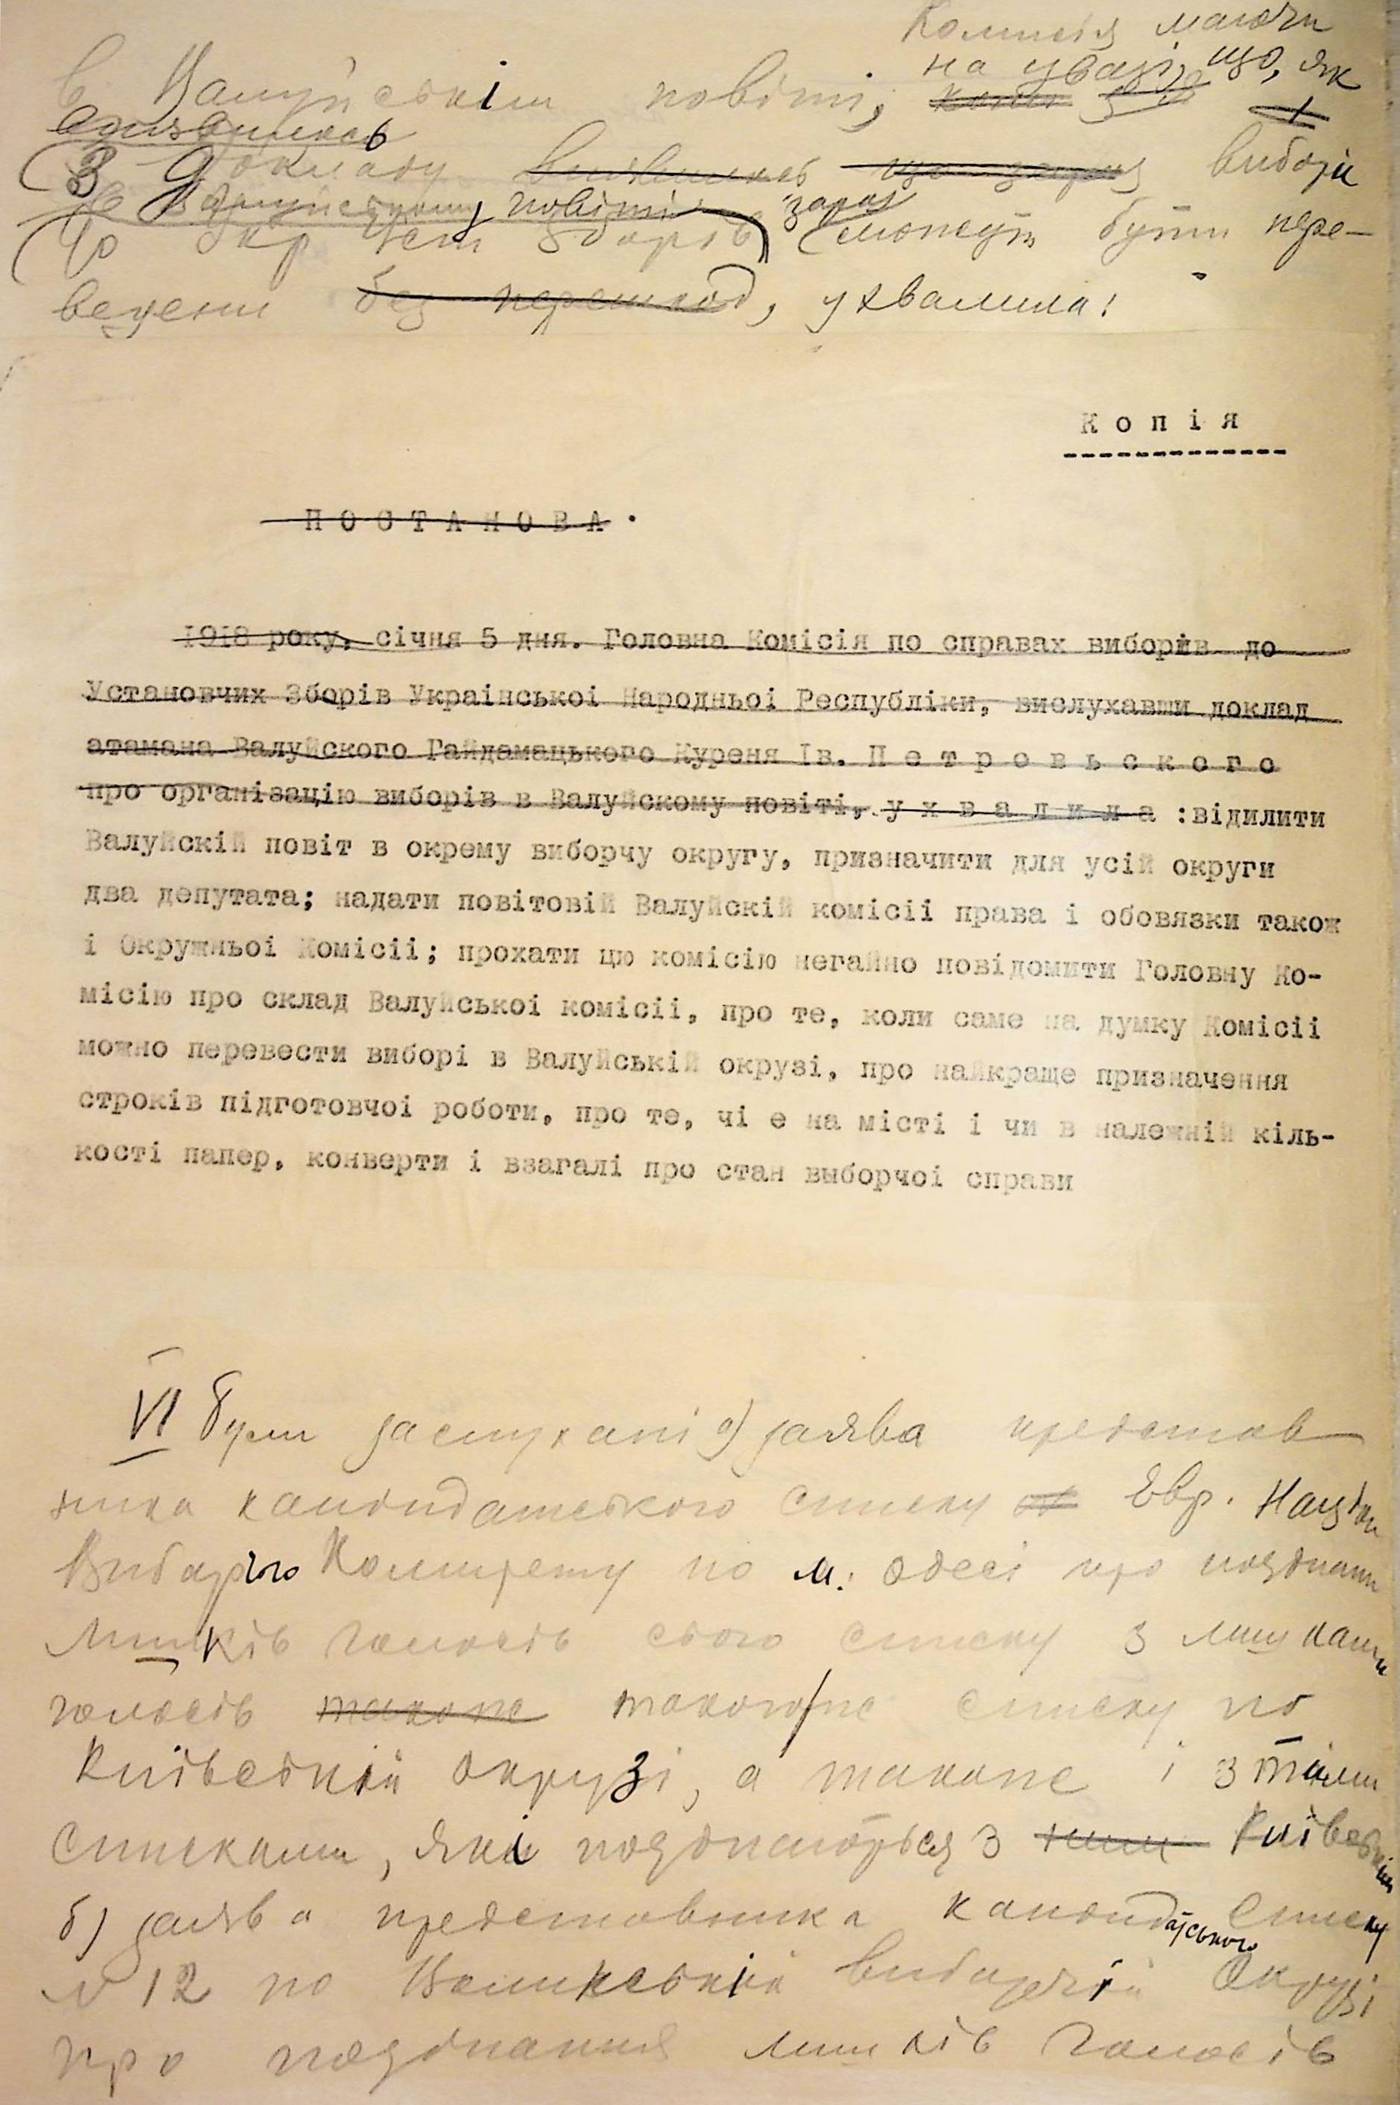 Комисія маючи
на увазі, що, як
в Валуйськім повіті,
виявилось
З докладу вияснилось що зараз вибори
в Валуйському повіті зараз
до Укр Уст Зборів можуть бути пере-
ведени без перешкод, ухвалила:
Копія
ПОСТАНОВА.
1918 року, січня 5 дня. Головна Комісія по справах виборів до
Установчих Зборів Украінськоі Народньоі Республіки, вислухавши доклад
атамана Валуйского Гайдамацького Куреня Ів. Петровьского
про організацію виборів в Валуйскому повіті, ухвалила :відилити
Валуйскій повіт в окрему виборчу округу, призначити для усій округи
два депутата; надати повітовій Валуйскій комісіі права і обовязки також
і Окружньоі Комісіі; прохати цю комісію негайно повідомити Головну Ко-
місію про склад Валуйськоі комісіі, про те, коли саме на думку Комісіі
можно перевести виборі в Валуйській окрузі, про найкраще призначення
строків підготовчоі роботи, про те, чі е на місті і чи в належній кіль-
кості папер, конверти і взагалі про стан выборчоі справи
VI були заслухані а) заява представ
ника кандидатського списку Евр. Націон
Виборчого Комитету по м. Одесі про поєднання
лишків голосів свого списку з лишками
голосів також такого же списку по
Київській окрузі, а також і з тими
списками, які поєднаються з ними Київській
б) заява представника кандидатського списку
№ 12 по Волинській виборчій Окрузі
про поєднання лишків голосів